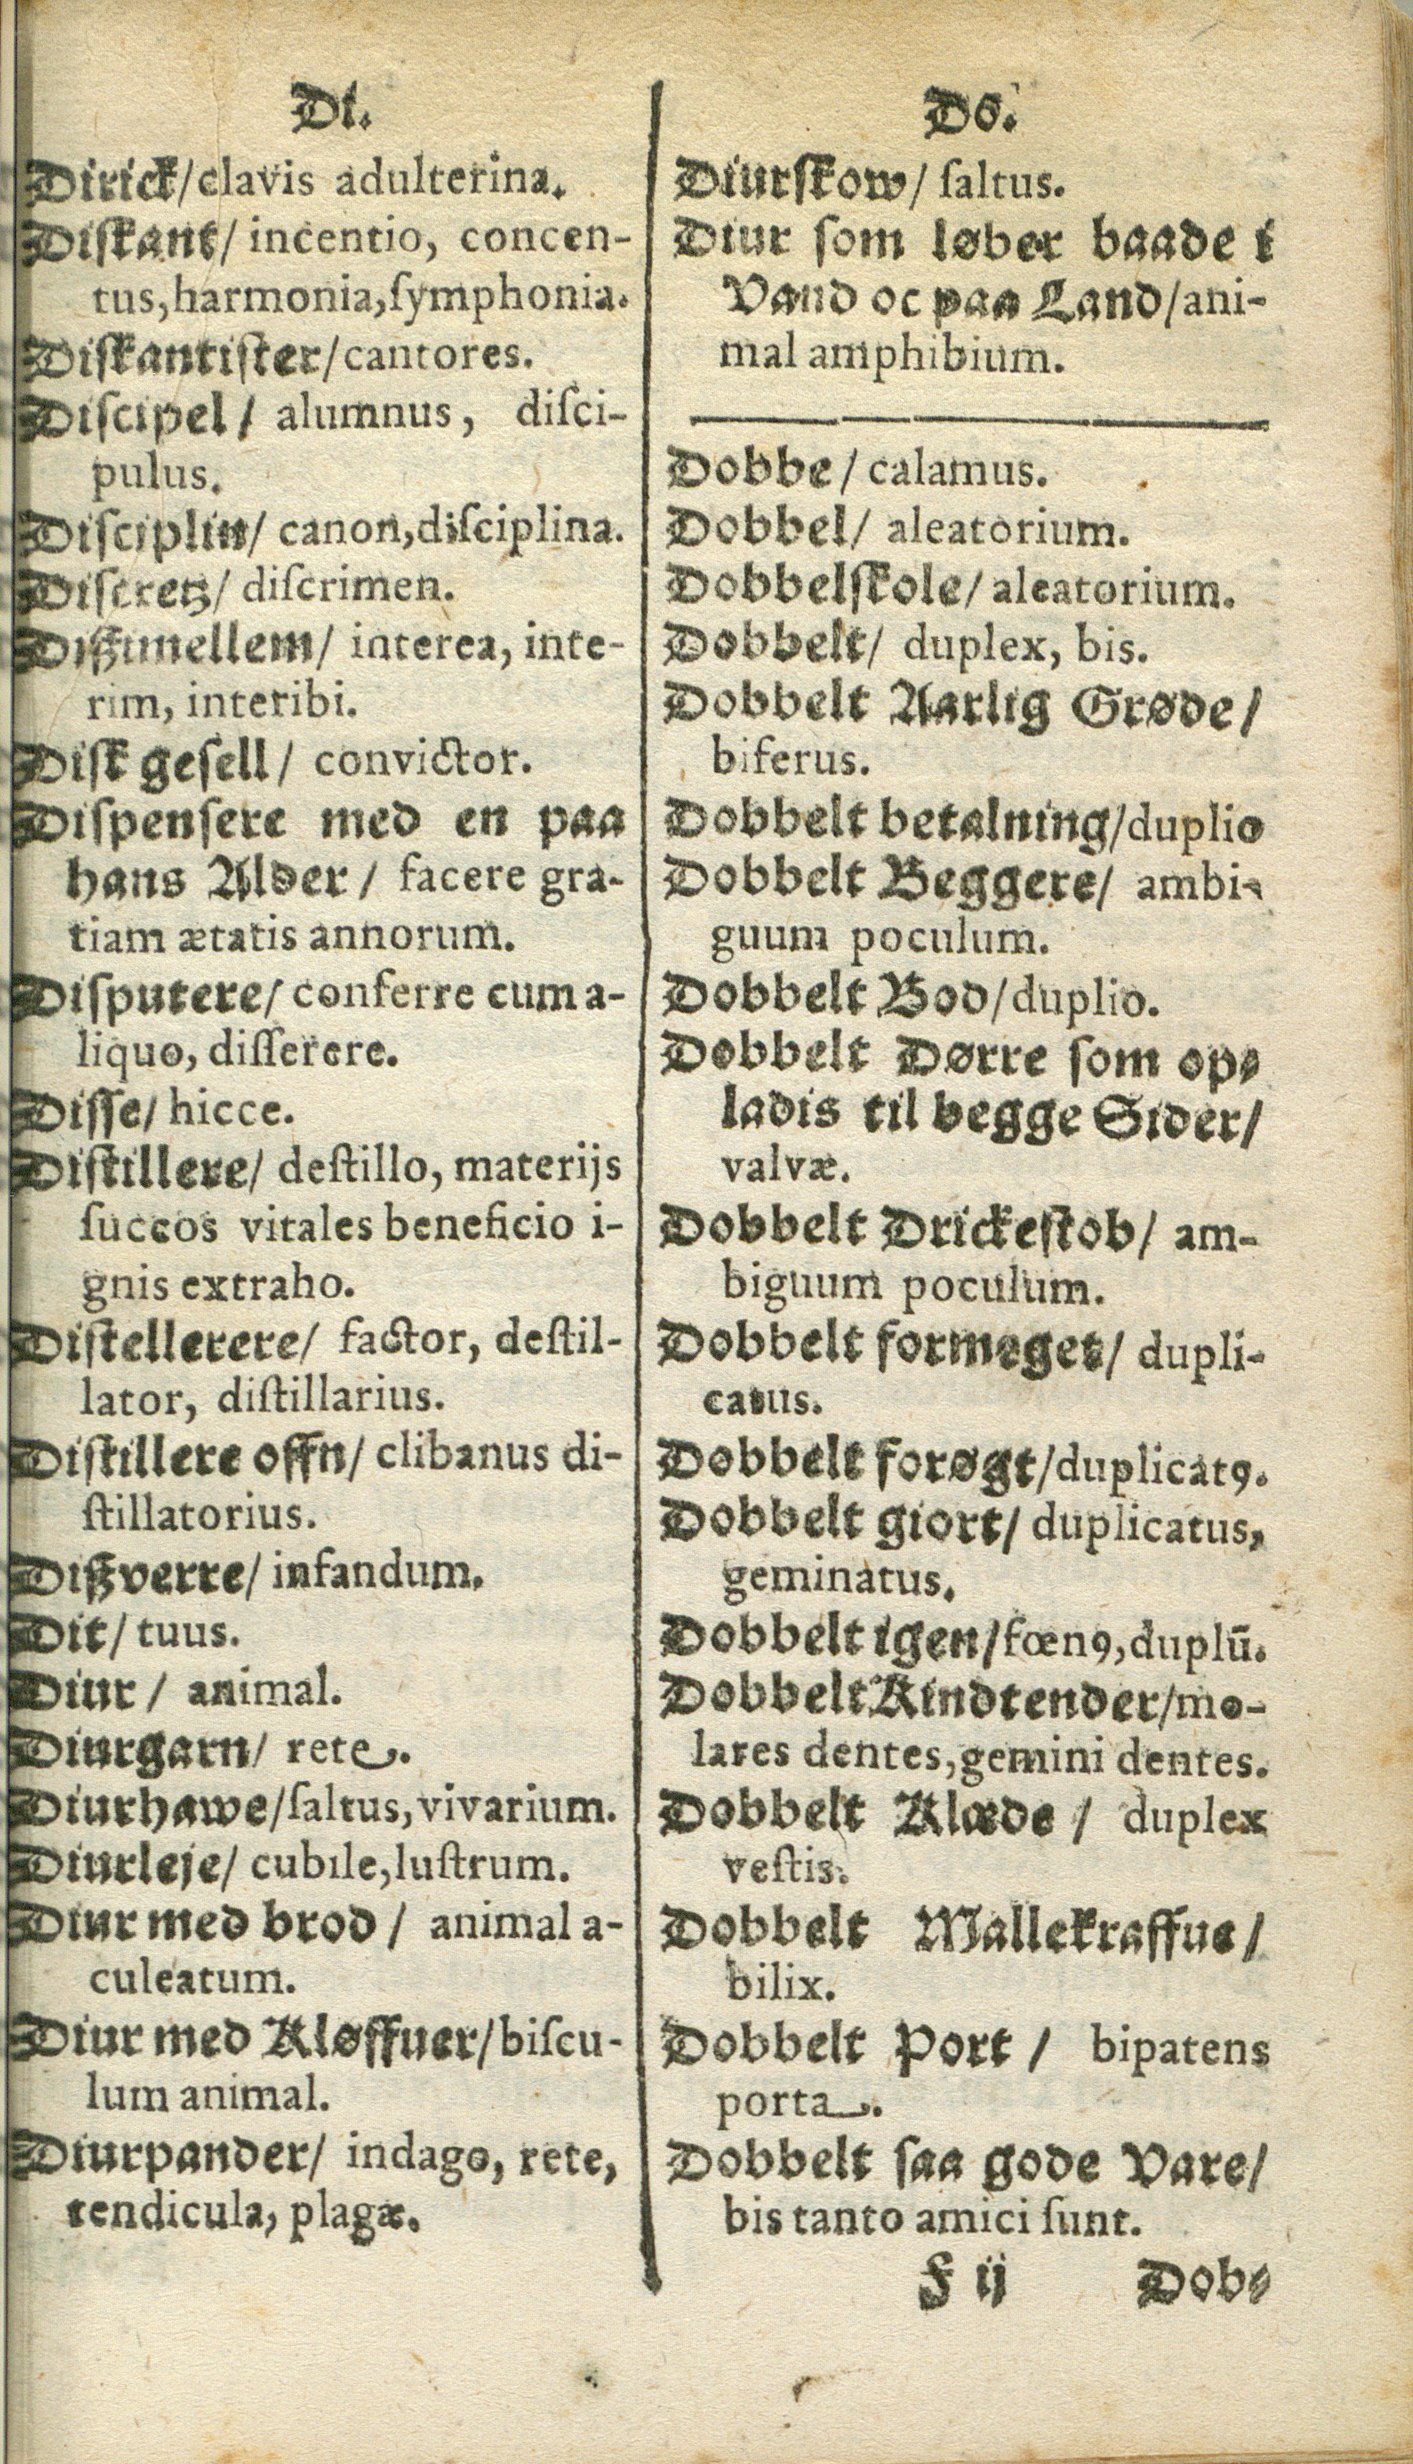 Di.
Dirick/clavis adulterina.
Diſkant/ incentio, concen-
tus, harmonia, ſymphonia.
Diſkantiſter/cantores.
Diſcipel/ alumnus, diſci-
pulus.
Diſciplin/ canon, diſciplina.
Diſcretz/ diſcrimen.
Dißimellem/ interea, inte-
rim, interibi.
Diſk geſell/ convictor.
Diſpenſere med en paa
hans Alder/ facere gra-
tiam ætatis annorum.
Diſputere/ conferre cum a-
liquo, diſſerere.
Diſſe/ hicce.
Diſtillere/ deſtillo, materijs
ſuccos vitales beneficio i-
gnis extraho.
Diſtellerere/ factor, deſtil-
lator, diſtillarius.
Diſtillere offn/ clibanus di-
ſtillatorius.
Dißverre/ infandum.
Dit/ tuus.
Diur/ animal.
Diurgarn/ rete.
Diurhawe/ſaltus, vivarium.
Diurleje/ cubile, luſtrum.
Diur med brod/ animal a-
culeatum.
Diur med Kløffuer/biſcu-
lum animal.
Diurpander/ indago, rete,
tendicula, plagæ.
Do.
Diurſkow/ ſaltus.
Diur ſom løber baade i
Vand oc paa Land/ani-
mal amphibium.
Dobbe/ calamus.
Dobbel/ aleatorium.
Dobbelſkole/ aleatorium.
Dobbelt/ duplex, bis.
Dobbelt Aarlig Grøde/
biferus.
Dobbelt betalning/duplio
Dobbelt Beggere/ ambi-
guum poculum.
Dobbelt Bod/duplio.
Dobbelt Dørre ſom op-
ladis til begge Sider/
valvæ.
Dobbelt Drickeſtob/ am-
biguum poculum.
Dobbelt formeget/ dupli-
catus.
Dobbelt forøgt/duplicatꝰ.
Dobbelt giort/ duplicatus,
geminatus.
Dobbelt igen/fœnꝰ, duplū.
Dobbelt Kindtender/mo-
lares dentes, gemini dentes.
Dobbelt Klæde/ duplex
veſtis.
Dobbelt Mallekraffue/
bilix.
Dobbelt Port/ bipatens
porta.
Dobbelt ſaa gode Vare/
bis tanto amici ſunt.
F ij Dob-